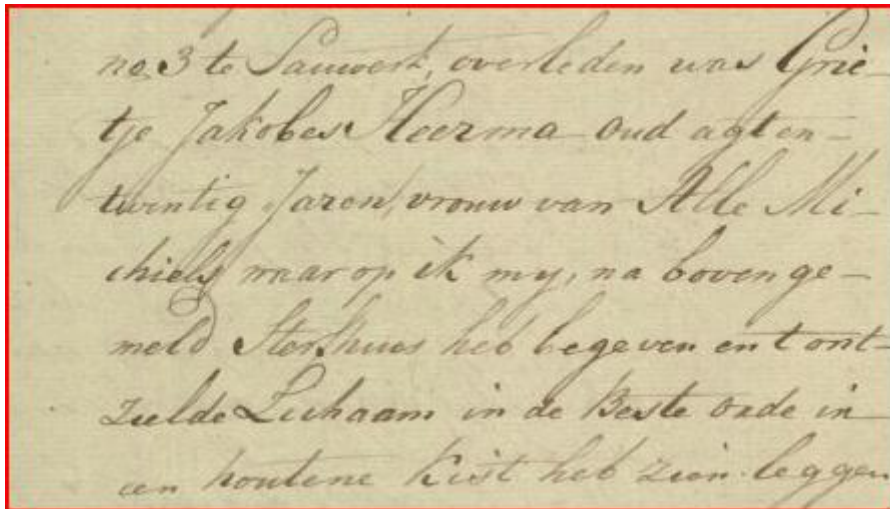 no 3 te Sauwert, overleden was Grie-
tje Jakobes Heerma oud agt en-
twintig Jaren, vrouw van Alle Mi-
chiels, waar op ik my, na boven ge-
meld Sterfhuis heb begeven en t ont-
zielde Lichaam in de Beste orde in
een houtene Kist heb zien leggen